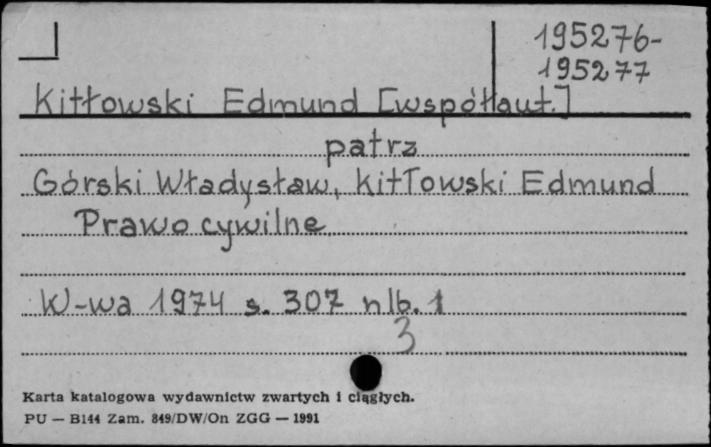 195276-
195277
Kitłowski Edmund [współaut.]
patrz
Górski Władysław, Kitłowski Edmund
Prawo cywilne
W-wa 1974 s. 307 nlb. 1
3
Karta katalogowa wydawnictw zwartych i ciągłych.
PU — B144 Zam. 849/DW/On ZGG — 1991